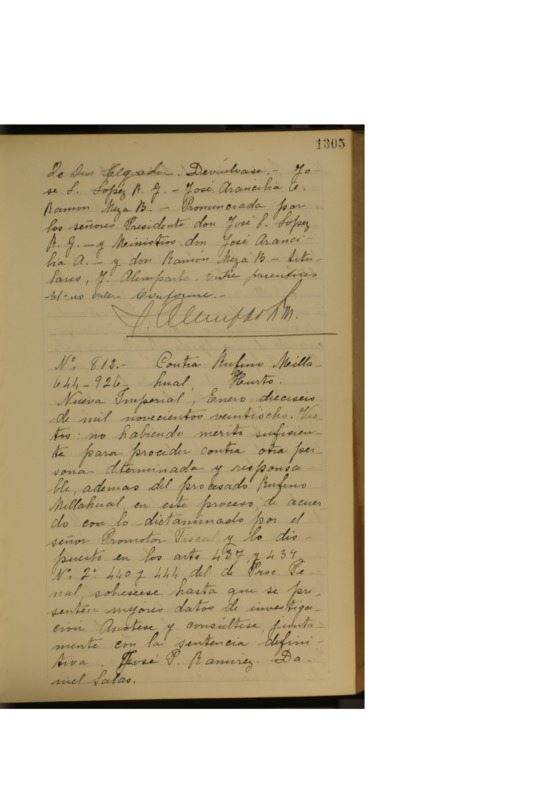 1305
Devuélvase. - Jo-
se S. Lopéz R. G. - José Arancibia C.
Ramon Meza B. - Pronunciada por
los señores Presidente don José S. Lopez
R. G. - y Ministros don José Aranci-
bia A. - y don Ramón Meza B. - titu-
lares, J. Alemparte. entre parentisis
no vale. Conforme. -
Nº. 813. - Contra Rufino Milla-
644-926. hual, Hurto.
Nueva Imperial, Enero dieciseis
de mil novecientos veintiocho. Vis-
tos: no habiendo mérito suficien-
te para proceder contra otra per-
sona dterminada y responsa-
ble, ademas del procesado Rufino
Millahual en este proceso, de acuer-
do con lo dictaminado por el
señor Promotor Fiscal y lo dis-
puesto en los arts 437, y 439
Nº. 2º. 440 y 444 del de Proc. Pe-
nal, sobresese hasta que se pre-
senten mejores datos de investiga-
cion. Anótese y consúltese junta-
mente con la sentencia defini-
tiva. José P. Ramirez. Da-
niel Salas.